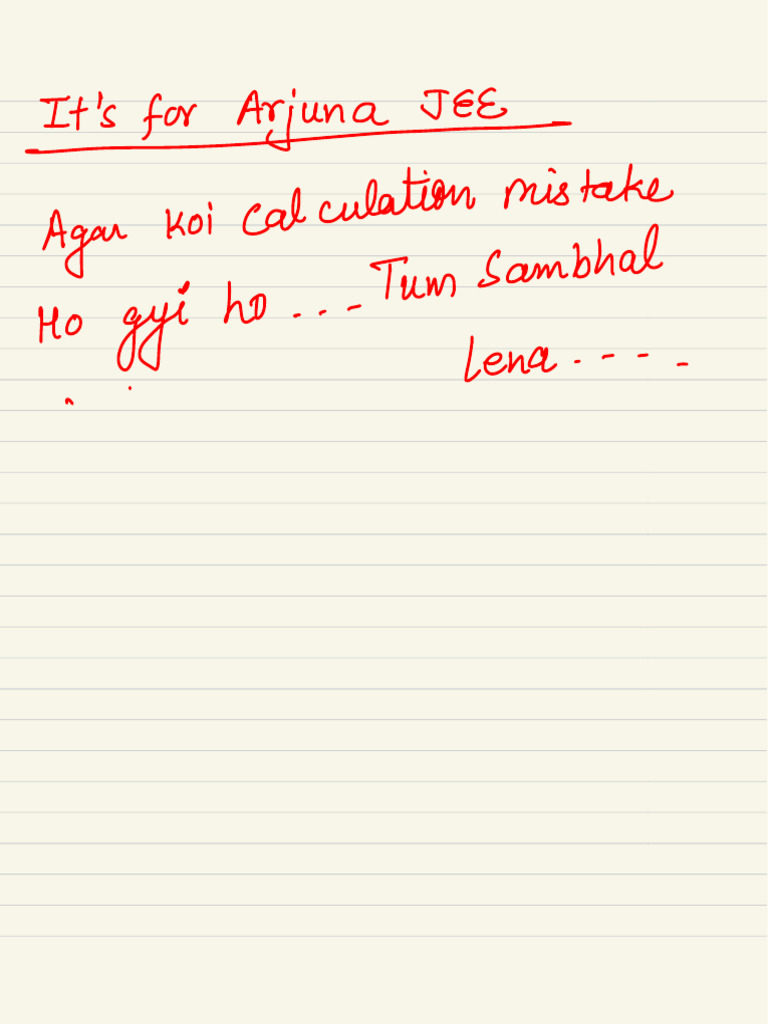 It's for Arjuna JEE
Agar koi calculation mistake
Ho gyi ho ... Tum Sambhal
Lena ....